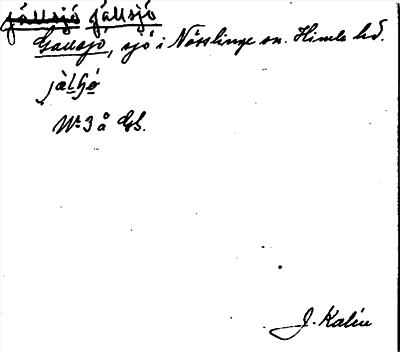 jällsjö jällsjö
Gällsjö, sjö i Nösslinge sn. Himle hd.
jàlʃö
Nr 3 å Gb.
J. Kalén